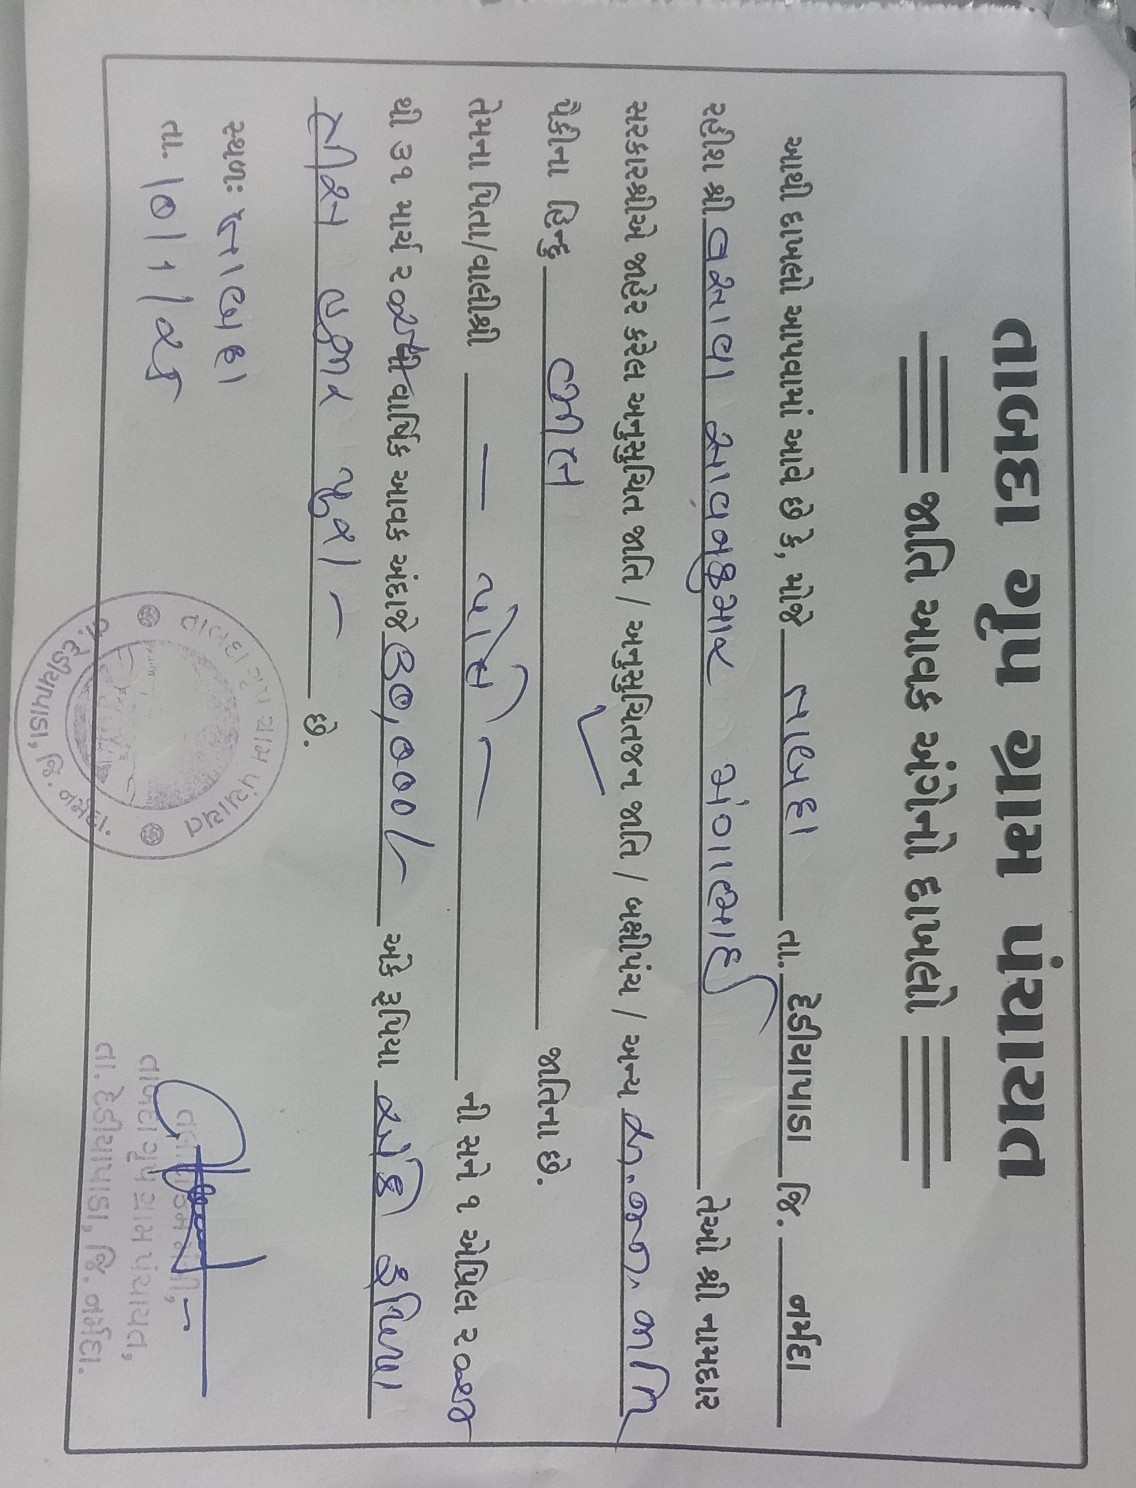 તાબદા ગૃપ ગ્રામ પંચાયત
જાતિ આવક અંગેનો દાખલો
આથી દાખલો આપવામાં આવે છે કે, મોજે તાબદા તા. દેડીયાપાડા જિ. નર્મદા
રહીશ શ્રી વસાવા શ્રાવણકુમાર તેઓ શ્રી નામદાર
સરકારશ્રીએ જાહેર કરેલ અનુસુચિત જાતિ / અનુસુચિતજન જાતિ / બક્ષીપંચ / અન્ય અનુ.જન.જાતિ
પૈકીના હિન્દુ ભીલ જાતિના છે.
તેમના પિતા/વાલીશ્રી — પોતે — ની સને ૧ એપ્રિલ ૨૦૨૪
થી ૩૧ માર્ચ ૨૦૨૫ ની વાર્ષિક આવક અંદાજે ૩૦,૦૦૦/- અંકે રૂપિયા અંકે રૂપિયા
ત્રીસ હજાર પુરા - છે.
સ્થળઃ તાબદા
તા. ૧૦/૧/૨૫
તાબદા ગૃપ ગ્રામ પંચાયત
તા. દેડીયાપાડા, જિ. નર્મદા.
તાબદા ગૃપ ગ્રામ પંચાયત,
તા. દેડીયાપાડા, જિ. નર્મદા.